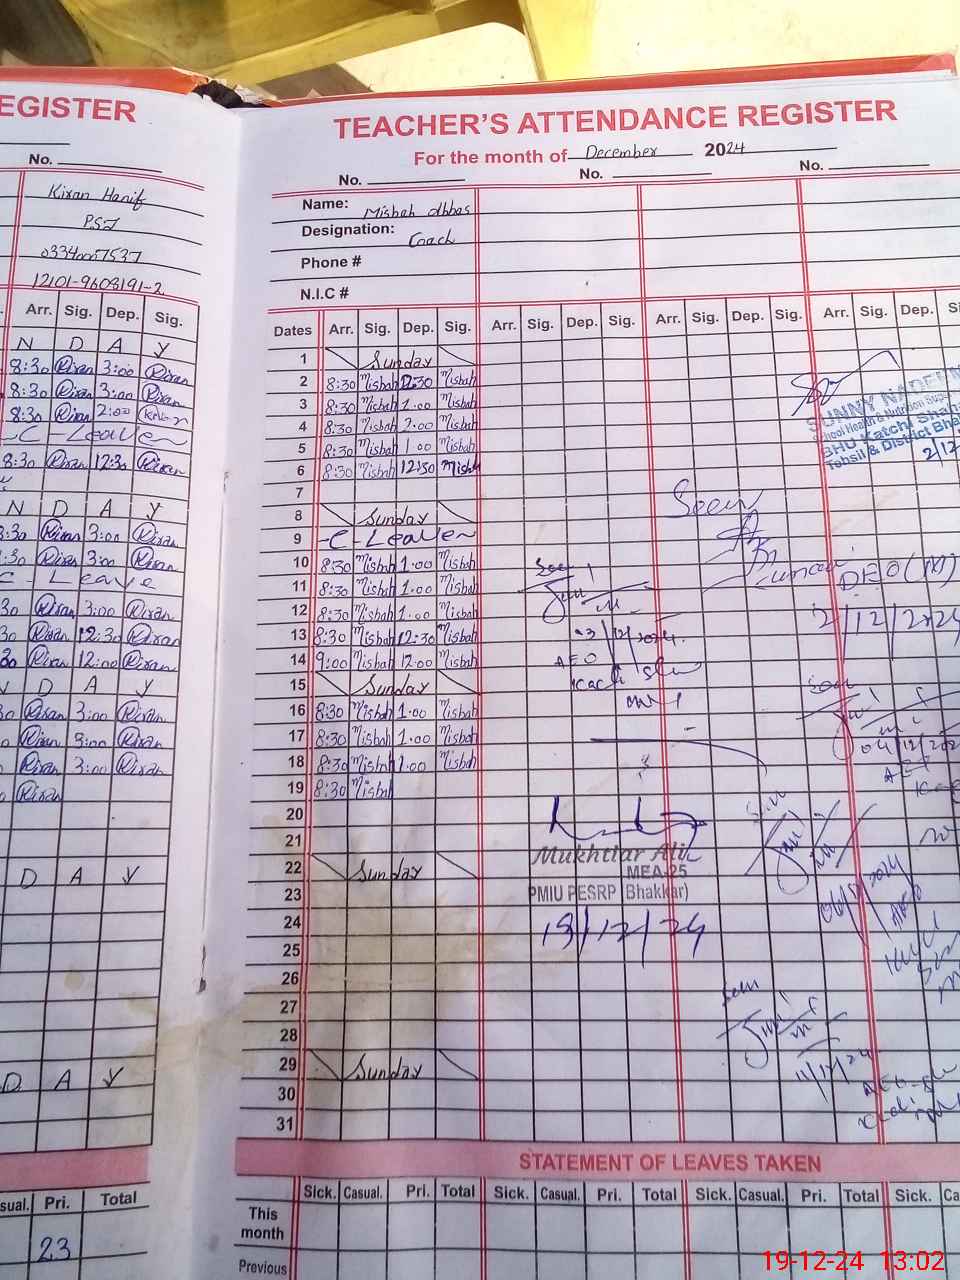 EGISTER
No.
Kiran Hanif
PST
12101-9608191-2
Arr. Sig. Dep. Sig.
N D A Y
8:30 Kiran 3:00 Kiran
8:30 Kiran 3:00 Kiran
8:30 Kiran 2:00 Kiran
-C- Leave
8:30 Kiran 12:30 Kiran
N D A Y
3:30 Kiran 3:00 Kiran
:30 Kiran 3:00 Kiran
C - Leave
30 Kiran 3:00 Kiran
30 Kiran 12:30 Kiran
30 Kiran 12:00 Kiran
D A Y
30 Kiran 3:00 Kiran
Kiran 3:00 Kiran
Kiran 3:00 Kiran
Kiran
D A Y
D A Y
sual. Pri. Total
23
TEACHER'S ATTENDANCE REGISTER
For the month of December 2024
No. No. No.
Name: Misbah Abbas
Designation: Coach
Phone #
N.I.C #
Dates Arr. Sig. Dep. Sig. Arr. Sig. Dep. Sig. Arr. Sig. Dep. Sig. Arr. Sig. Dep.
1 Sunday
2 8:30 Misbah 12:30 Misbah
3 8:30 Misbah 1:00 Misbah
4 8:30 Misbah 2:00 Misbah
5 8:30 Misbah 1:00 Misbah
6 8:30 Misbah 12:30 Misbah
7
8 Sunday
9 -C-Leave
10 8:30 Misbah 1:00 Misbah
11 8:30 Misbah 1:00 Misbah
12 8:30 Misbah 1:00 Misbah
13 8:30 Misbah 12:30 Misbah
14 9:00 Misbah 12:00 Misbah
15 Sunday
16 8:30 Misbah 1:00 Misbah
17 8:30 Misbah 1:00 Misbah
18 8:30 Misbah 1:00 Misbah
19 8:30 Misbah
20
21
22 Sunday
23
24
25
26
27
28
29 Sunday
30
31
SUNNY NADEEM
School Health & Nutrition Supe
BHU Katchi Shaha
Tehsil & District Bha
2/12
Seen
DEO (M)
2/12/2024
Seen
03/12/2024
AEO
Seen
04/12/202
Mukhtiar Ali
MEA-25
PMIU PESRP (Bhakkar)
19/12/24
Seen
11/12/24
STATEMENT OF LEAVES TAKEN
Sick. Casual. Pri. Total Sick. Casual. Pri. Total Sick. Casual. Pri. Total Sick. Ca
This month
Previous
19-12-24 13:02